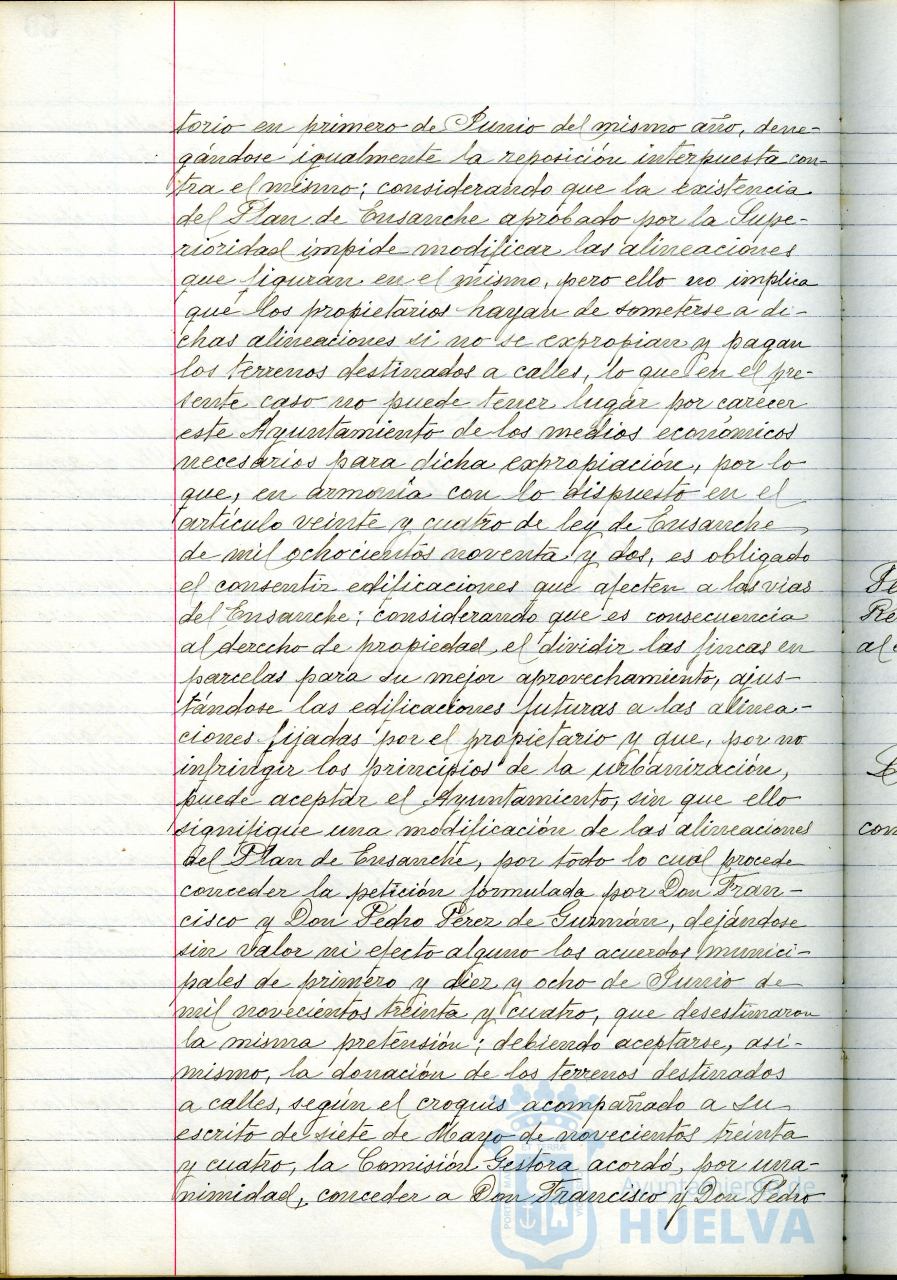 torio en primero de Junio del mismo año, dene-
gándose igualmente la reposición interpuesta con-
tra el mismo; considerando que la existencia
del Plan de Ensanche aprobado por la Supe-
rioridad impide modificar las alineaciones
que figuran en el mismo, pero ello no implica
que los propietarios hayan de someterse a di-
chas alineaciones si no se expropian y pagan
los terrenos destinados a calles, lo que en el pre-
sente caso no puede tener lugar por carecer
este Ayuntamiento de los medios económicos
necesarios para dicha expropiación, por lo
que, en armonía con lo dispuesto en el
artículo veinte y cuatro de ley de Ensanche
de mil ochocientos noventa y dos, es obligado
el consentir edificaciones que afecten a las vías
del Ensanche; considerando que es consecuencia
al derecho de propiedad el dividir las fincas en
parcelas para su mejor aprovechamiento, ajus-
tándose las edificaciones futuras a las alinea-
ciones fijadas por el propietario y que, por no
infringir los principios de la urbanización,
puede aceptar el Ayuntamiento, sin que ello
signifique una modificación de las alineaciones
del Plan de Ensanche, por todo lo cual procede
conceder la petición formulada por Don Fran-
cisco y Don Pedro Pérez de Guzmán, dejándose
sin valor ni efecto alguno los acuerdos munici-
pales de primero y diez y ocho de Junio de
mil novecientos treinta y cuatro, que desestimaron
la misma pretensión; debiendo aceptarse, asi-
mismo, la donación de los terrenos destinados
a calles, según el croquis acompañado a su
escrito de siete de Mayo de novecientos treinta
y cuatro, la Comisión Gestora acordó, por una-
nimidad, conceder a Don Francisco y Don Pedro
Ayuntamiento de
HUELVA
Re
al
con